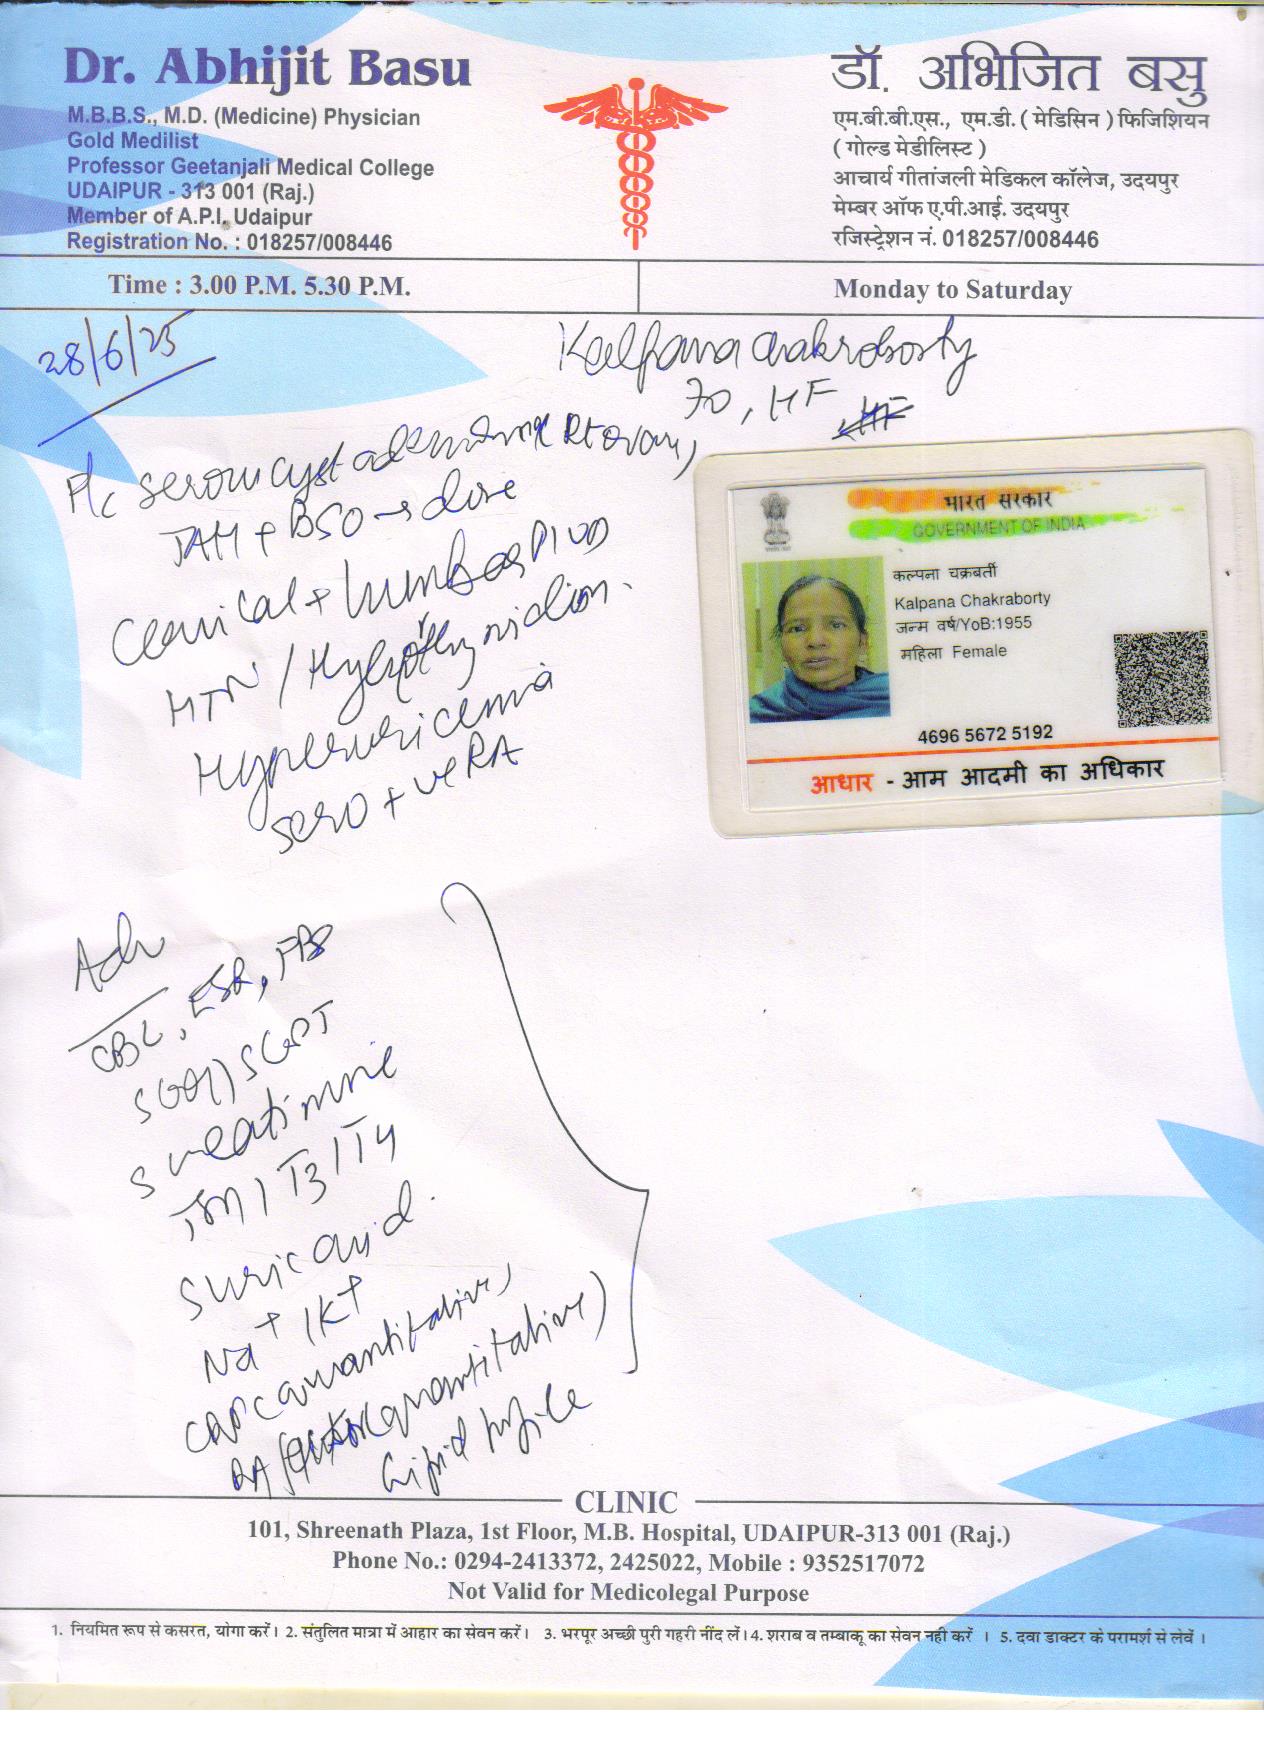 Dr. Abhijit Basu
M.B.B.S., M.D. (Medicine) Physician
Gold Medilist
Professor Geetanjali Medical College
UDAIPUR - 313 001 (Raj.)
Member of A.P.I. Udaipur
Registration No. : 018257/008446
डॉ. अभिजित बसु
एम.बी.बी.एस., एम.डी. ( मेडिसिन ) फिजिशियन
( गोल्ड मेडीलिस्ट )
आचार्य गीतांजली मेडिकल कॉलेज, उदयपुर
मेम्बर ऑफ ए.पी.आई. उदयपुर
रजिस्ट्रेशन नं. 018257/008446
Time : 3.00 P.M. 5.30 P.M.
Monday to Saturday
28/6/25
Kalpana Chakroborty
70, HF
serous cystadenoma Rt ovary,
TAH + BSO → done
Cervical + lumbar PIVD
HTN / Hypothyroidism.
Hyperuricemia
sero + ve RA
भारत सरकार
GOVERNMENT OF INDIA
कल्पना चक्रबर्ती
Kalpana Chakraborty
जन्म वर्ष/YoB:1955
महिला Female
4696 5672 5192
आधार - आम आदमी का अधिकार
Adv
CBC, ESR, FBS
SGOT, SGPT
S creatinine
TSH / T3 / T4
S uric acid.
Na+ / K+
CRP (quantitative)
RA (quantitative)
Lipid profile
CLINIC
101, Shreenath Plaza, 1st Floor, M.B. Hospital, UDAIPUR-313 001 (Raj.)
Phone No.: 0294-2413372, 2425022, Mobile : 9352517072
Not Valid for Medicolegal Purpose
1. नियमित रूप से कसरत, योगा करें। 2. संतुलित मात्रा में आहार का सेवन करें। 3. भरपूर अच्छी पुरी गहरी नींद लें। 4. शराब व तम्बाकू का सेवन नही करें । 5. दवा डाक्टर के परामर्श से लेवें ।